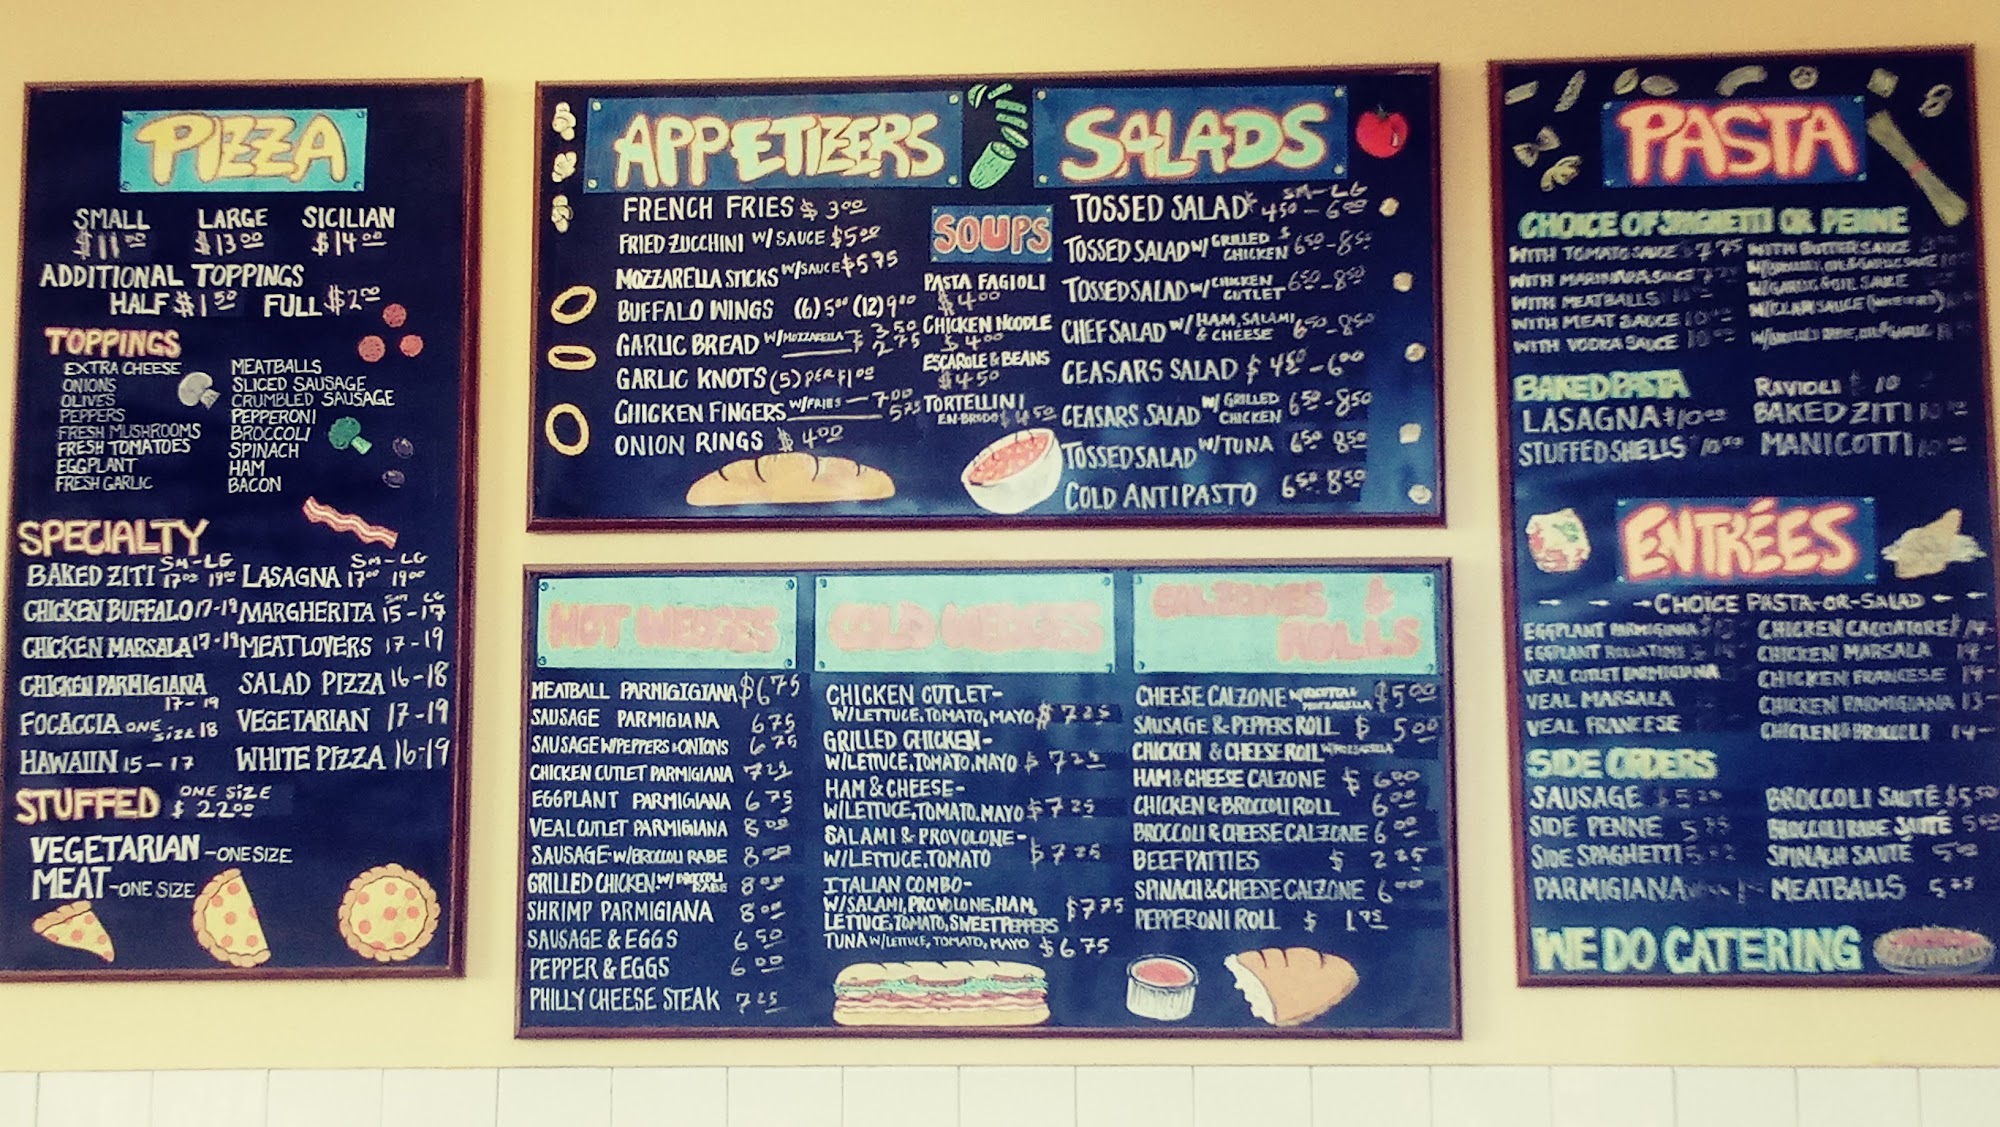 PIZZA
SMALL LARGE SICILIAN
$11 $13 00 $14 00
ADDITIONAL TOPPINGS
HALF $1 50 FULL $2 00
TOPPINGS
EXTRA CHEESE
ONIONS
OLIVES
PEPPERS
FRESH MUSHROOMS
FRESH TOMATOES
EGGPLANT
FRESH GARLIC
MEATBALLS
SLICED SAUSAGE
CRUMBLED SAUSAGE
PEPPERONI
BROCCOLI
SPINACH
HAM
BACON
SPECIALTY
SM-LG SM-LG
BAKED ZITI 17 00 19 00 LASAGNA 17 00 19 00
CHICKEN BUFFALO 17-19 MARGHERITA SM LG 15-17
CHICKEN MARSALA 17-19 MEATLOVERS 17-19
CHICKEN PARMIGIANA 17-19 SALAD PIZZA 16-18
FOCACCIA ONE SIZE 18 VEGETARIAN 17-19
HAWAIIN 15-17 WHITE PIZZA 16-19
STUFFED ONE SIZE $22 00
VEGETARIAN-ONE SIZE
MEAT-ONE SIZE
APPETIZERS
FRENCH FRIES $3 00
FRIED ZUCCHINI W/SAUCE $5 00
MOZZARELLA STICKS W/SAUCE $5 75
BUFFALO WINGS (6) 5 00 (12) 9 00
GARLIC BREAD W/MOZZARELLA 3 50
2 75
GARLIC KNOTS (5) PER $1 00
CHICKEN FINGERS W/FRIES — 7 00
5 75
ONION RINGS $4 00
SOUPS
PASTA FAGIOLI
$4 00
CHICKEN NOODLE
$4 00
ESCAROLE & BEANS
$4 50
TORTELLINI
EN BRODO $4 50
SALADS
SM-LG
TOSSED SALAD 4 50-6 00
TOSSED SALAD W/GRILLED CHICKEN $6 50-8 50
TOSSED SALAD W/CHICKEN CUTLET 6 50-8 50
CHEF SALAD W/HAM, SALAMI & CHEESE 6 50-8 50
CEASARS SALAD $4 50-6 00
CEASARS SALAD W/GRILLED CHICKEN 6 50-8 50
TOSSED SALAD W/TUNA 6 50 8 50
COLD ANTIPASTO 6 50-8 50
HOT WEDGES
MEATBALL PARMIGIGIANA $6 75
SAUSAGE PARMIGIANA 6 75
SAUSAGE W/PEPPERS & ONIONS 6 75
CHICKEN CUTLET PARMIGIANA 7 25
EGGPLANT PARMIGIANA 6 75
VEAL CUTLET PARMIGIANA 8 00
SAUSAGE-W/BROCCOLI RABE 8 00
GRILLED CHICKEN-W/BROCCOLI RABE 8 00
SHRIMP PARMIGIANA 8 00
SAUSAGE & EGGS 6 50
PEPPER & EGGS 6 00
PHILLY CHEESE STEAK 7 25
COLD WEDGES
CHICKEN CUTLET-
W/LETTUCE, TOMATO, MAYO $7 25
GRILLED CHICKEN-
W/LETTUCE, TOMATO, MAYO $7 25
HAM & CHEESE-
W/LETTUCE, TOMATO, MAYO $7 25
SALAMI & PROVOLONE-
W/LETTUCE, TOMATO $7 25
ITALIAN COMBO-
W/SALAMI, PROVOLONE, HAM,
LETTUCE, TOMATO, SWEET PEPPERS $7 75
TUNA W/LETTUCE, TOMATO, MAYO $6 75
CALZONES &
ROLLS
CHEESE CALZONE $5 00
SAUSAGE & PEPPERS ROLL $5 00
CHICKEN & CHEESE ROLL W/MOZZARELLA
HAM & CHEESE CALZONE $6 00
CHICKEN & BROCCOLI ROLL 6 00
BROCCOLI & CHEESE CALZONE 6 00
BEEF PATTIES $2 25
SPINACH & CHEESE CALZONE 6 00
PEPPERONI ROLL $1 75
PASTA
CHOICE OF SPAGHETTI OR PENNE
WITH TOMATO SAUCE $7 75
WITH MARINARA SAUCE
WITH MEATBALLS
WITH MEAT SAUCE
WITH VODKA SAUCE
WITH BUTTER SAUCE
W/GARLIC & OIL SAUCE
W/CLAM SAUCE
BAKED PASTA
LASAGNA $10 00
STUFFED SHELLS 10 00
RAVIOLI $10
BAKED ZITI
MANICOTTI
ENTRÉES
CHOICE PASTA-OR-SALAD
EGGPLANT PARMIGIANA
EGGPLANT ROLLATINI
VEAL CUTLET PARMIGIANA
VEAL MARSALA
VEAL FRANCESE
CHICKEN CACCIATORE $14-
CHICKEN MARSALA 14-
CHICKEN FRANCESE 14-
CHICKEN PARMIGIANA 13-
CHICKEN & BROCCOLI 14-
SIDE ORDERS
SAUSAGE
SIDE PENNE
SIDE SPAGHETTI
PARMIGIANA
BROCCOLI SAUTÉ $5 50
BROCCOLI RABE SAUTÉ
SPINACH SAUTÉ
MEATBALLS 5 25
WE DO CATERING